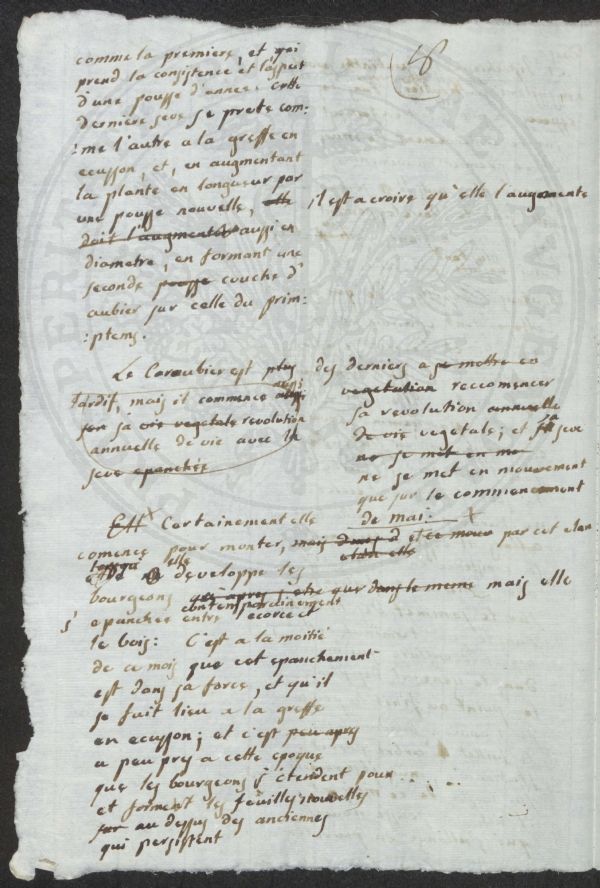 18
comme la premiere, et qui
prend la consistence et l'aspect
d'une pousse d'année. Cette
derniere seve se prete com:
:me l'autre a la greffe en
ecusson, et, en augmentant
la plante en longueur par
une pousse nouvelle, elle il est a croire qu'elle l'augmente
doit l'augmenter aussi en
diametre, en formant une
seconde pousse couche d'
aubier sur celle du prim:
:ptems.
Le Caroubier est plus
tardif, mais il commence aussi
sa vie vegetale revolution
annuelle de vie avec la
seve epanchée
des derniers a se mettre en
vegetation reccomencer
sa revolution annuelle
de vie vegetale; et sa seve
ne se met en mo
ne se met en mouvement
que sur le commencement
de mai: X
Ell X Certainement elle
comence pour monter, mais et ce mouv par cet elan
elan elle
lorsqu'elle developpe les
bourgeons que dans le meme mais elle
contemporainement
s'epanche entre l'ecorce et
le bois: C'est a la moitié
de ce mois que cet epanchement
est dans sa force, et qu'il
se fait lieu a la greffe
en ecusson; et c'est peu apres
a peu pres a cette epoque
que les bourgeons s'étendent pour
et forment les feuilles nouvelles
sur au dessus des anciennes
qui persistent